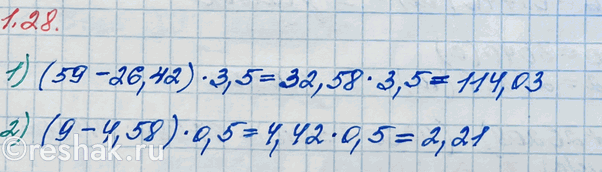 1.28.
1) (59 - 26,42) · 3,5 = 32,58 · 3,5 = 114,03
2) (9 - 4,58) · 0,5 = 4,42 · 0,5 = 2,21
©reshak.ru